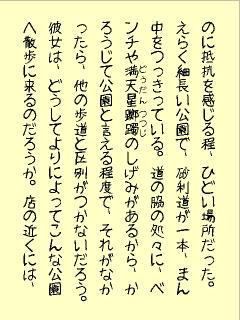 のに抵抗を感じる程、ひどい場所だった。
えらく細長い公園で、砂利道が一本、まん
中をつっきっている。道の脇の処々に、ベ
ンチや満天星躑躅のしげみがあるから、か
どうだんつつじ
ろうじて公園と言える程度で、それがなか
ったら、他の歩道と区別がつかないだろう。
彼女は、どうしてよりによってこんな公園
へ散歩に来るのだろうか。店の近くには、